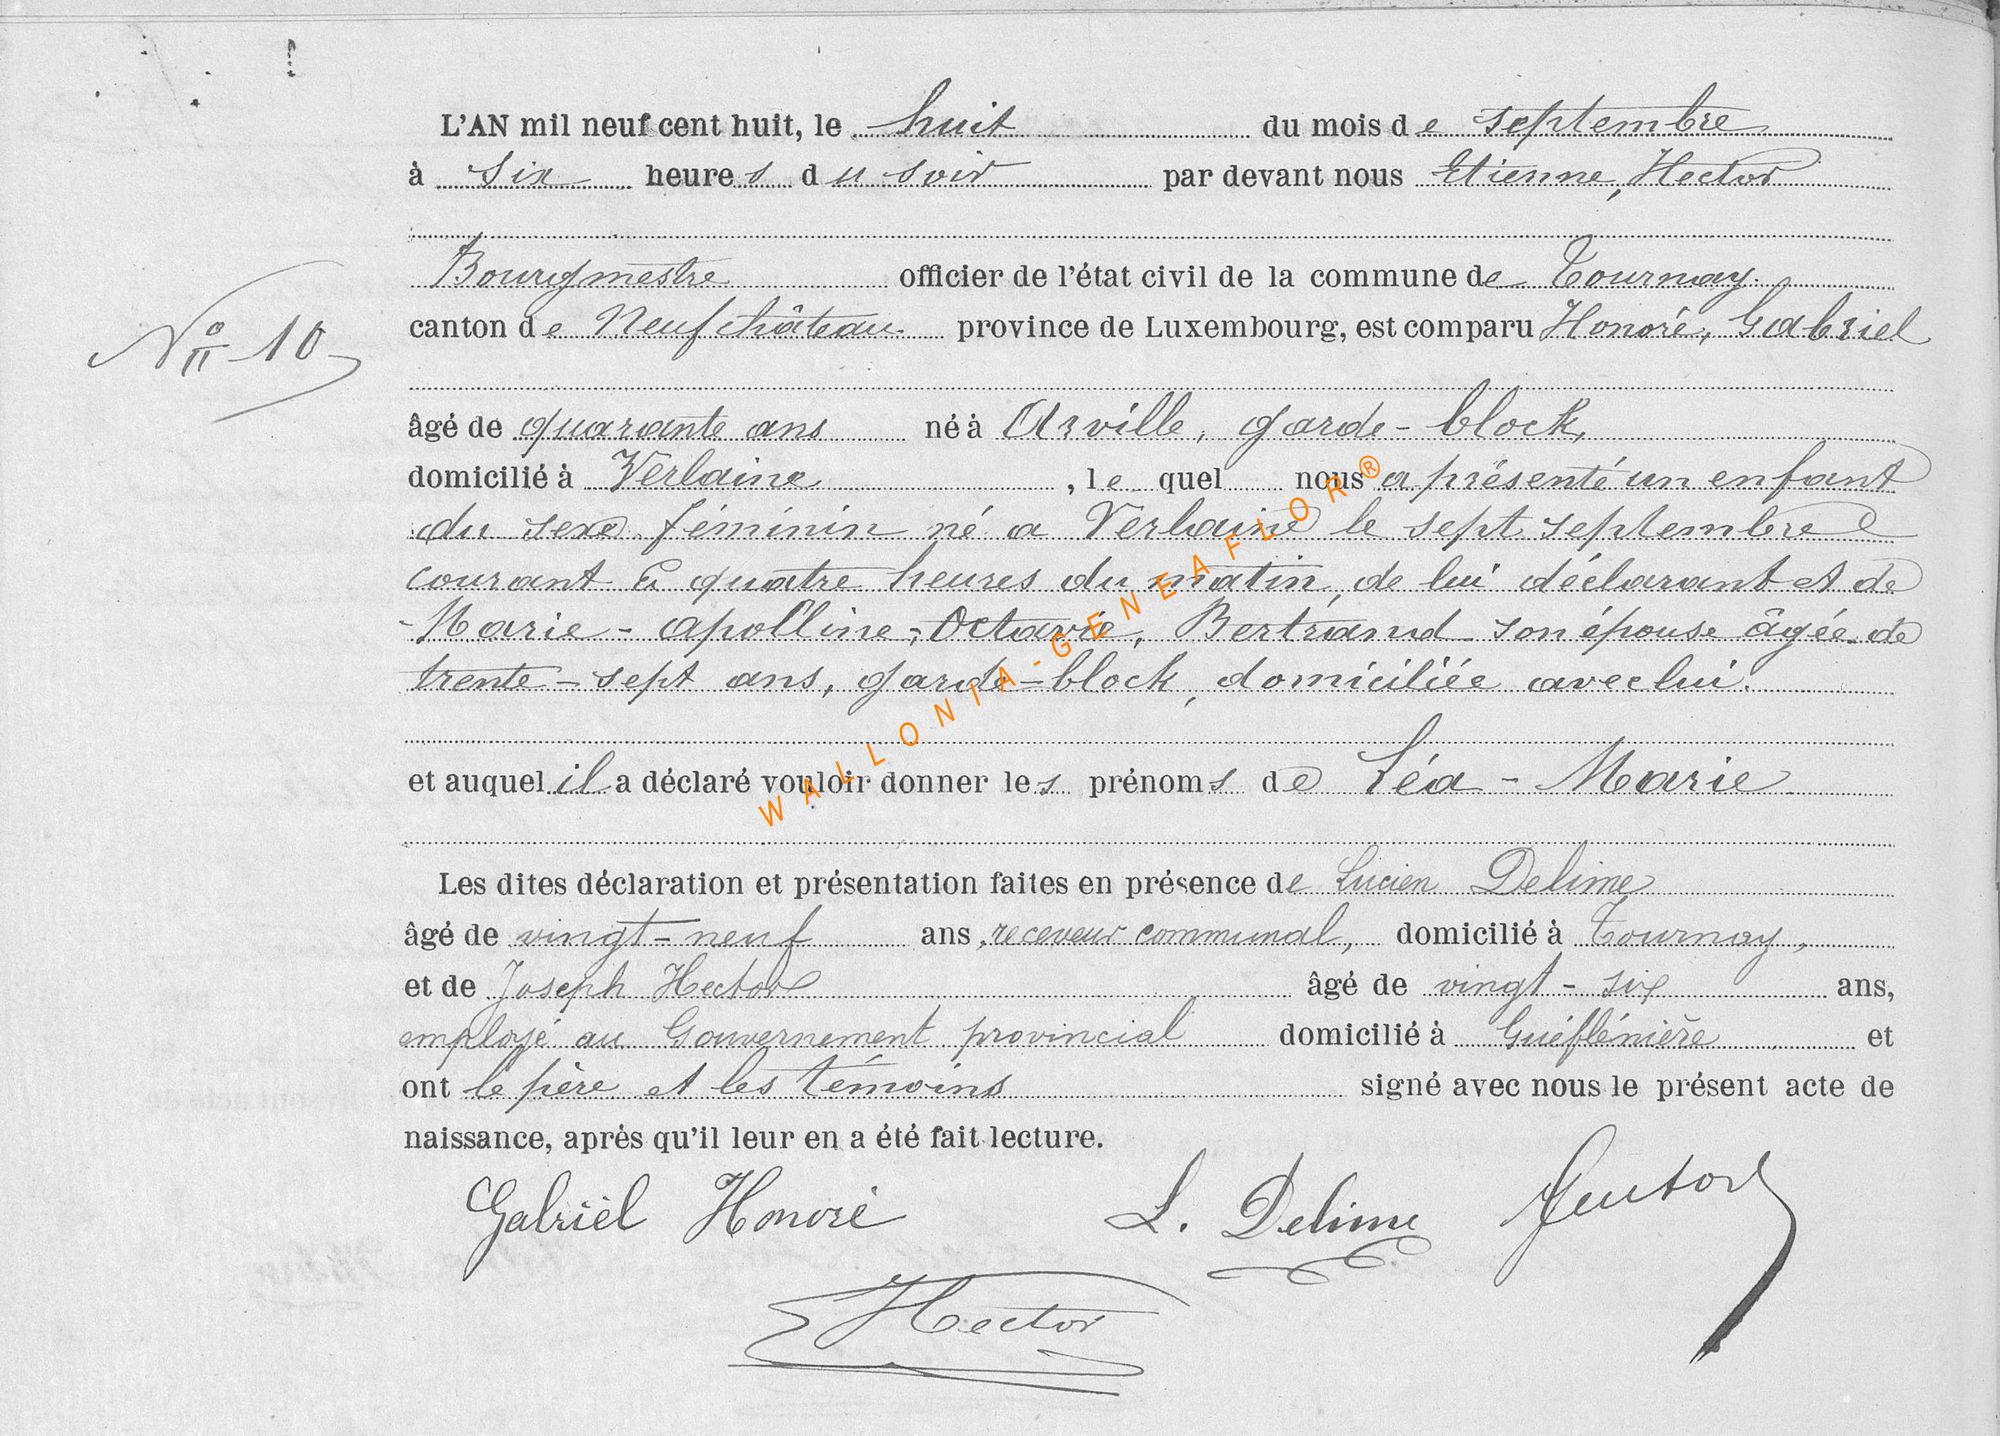 L'AN mil neuf cent huit, le huit du mois de septembre
à six heures du soir par devant nous Etienne, Hector
Bourgmestre officier de l'état civil de la commune de Tournay.
N° 10
canton de Neufchâteau province de Luxembourg, est comparu Honoré, Gabriel
âgé de quarante ans né à Arville, garde-block,
domicilié à Verlaine, le quel nous a présenté un enfant
du sexe féminin né a Verlaine le sept septembre
courant à quatre heures du matin, de lui déclarant et de
Marie-apolline-Octavie, Bertrand son épouse âgée de
trente-sept ans, garde-block, domiciliée avec lui.
et auquel il a déclaré vouloir donner les prénoms de Léa-Marie
Les dites déclaration et présentation faites en présence de Lucien Delime
âgé de vingt-neuf ans, receveur communal, domicilié à Tournay,
et de Joseph Hector âgé de vingt-six ans,
employé au Gouvernement provincial domicilié à et
ont le père et les témoins signé avec nous le présent acte de
naissance, après qu'il leur en a été fait lecture.
Gabriel Honoré L. Delime
Hector
WALLONIA-GENEAFLOR®